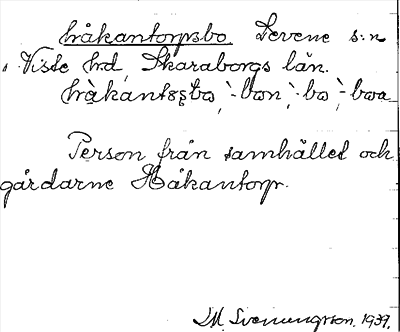 håkantorpsbo Levene s:n
Viste hrd, Skaraborgs län.
-bon, -bo, -boa
Person från samhället och
gårdarne Håkantorp.
M. Svenungsson. 1939.